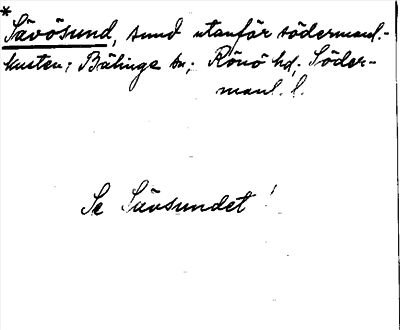 * Sävösund, sund utanför södermanl.-
kusten; Bälinge sn; Rönö hd, Söder-
manl. l.
Se Sävsundet!